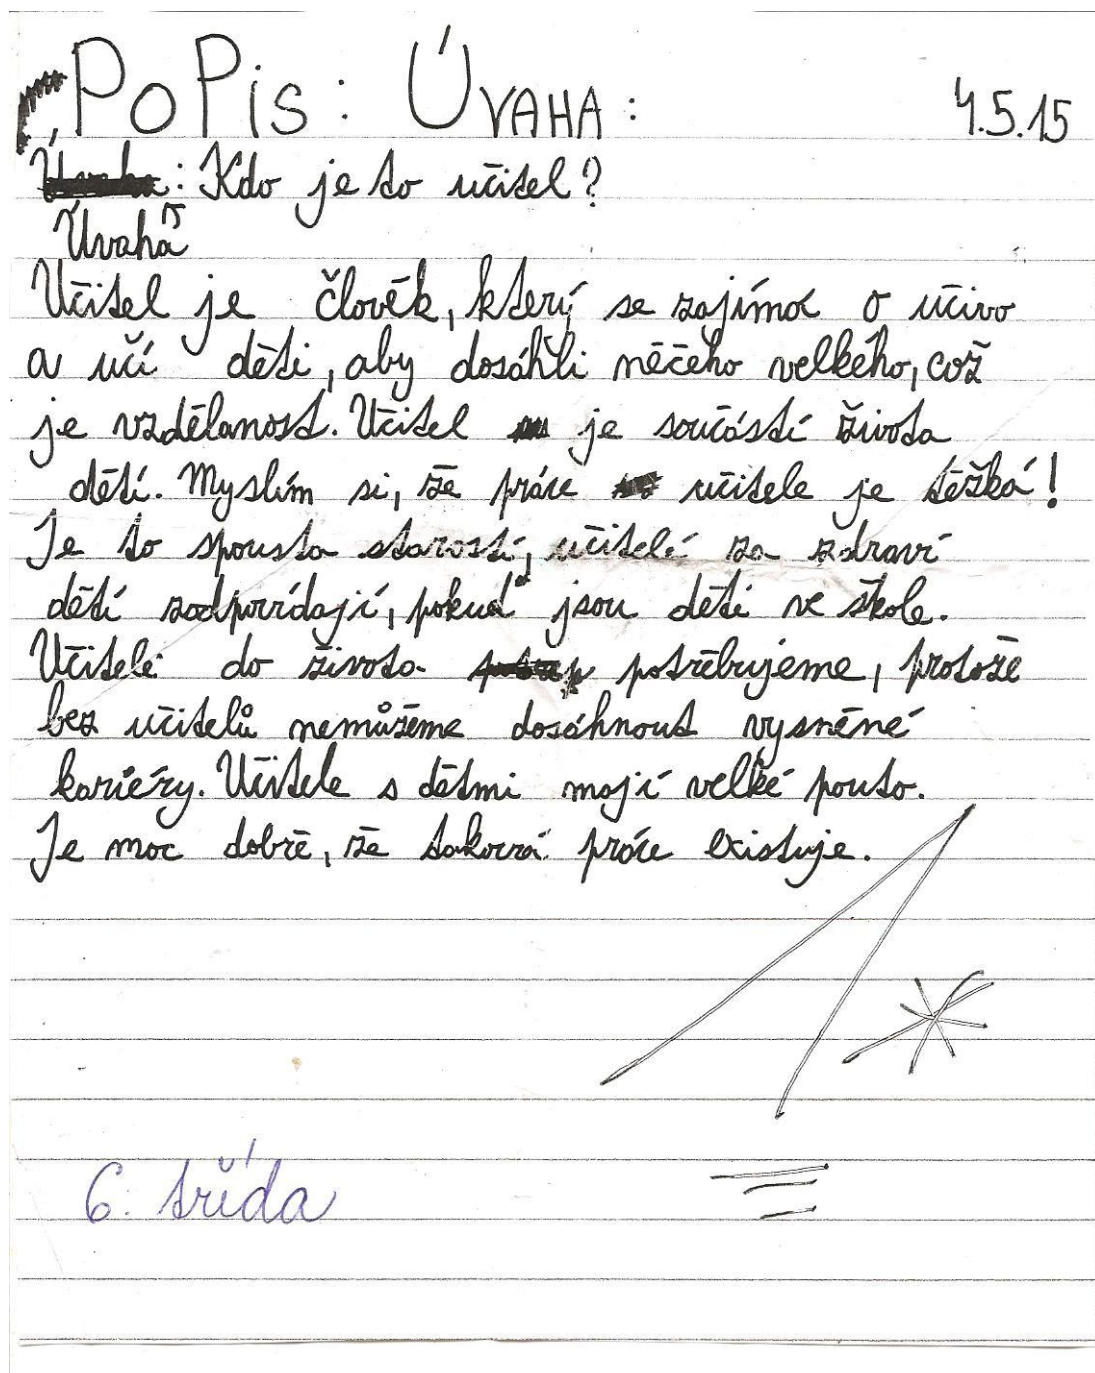 PoPis: ÚVAHA: 4.5.15
: Kdo je to učitel?
Úvaha
Učitel je člověk, který se zajímá o učivo
a učí děti, aby dosáhli něčeho velkého, což
je vzdělanost. Učitel je součástí života
dětí. Myslím si, že práce učitele je těžká!
Je to spousta starostí, učitelé za zdraví
dětí zodpovídají, pokud jsou děti ve škole.
Učitele do života potřebujeme, protože
bez učitelů nemůžeme dosáhnout vysněné
kariéry. Učitele s dětmi mají velké pouto.
Je moc dobře, že taková práce existuje.
1*
6. třída